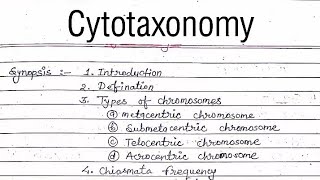 Cytotaxonomy
Synopsis :- 1. Introduction
2. Defination
3. Types of chromosomes
ⓐ metacentric chromosome
ⓑ Submetacentric chromosome
ⓒ Telocentric chromosome
ⓓ Acrocentric chromosome
4. Chiasmata frequency